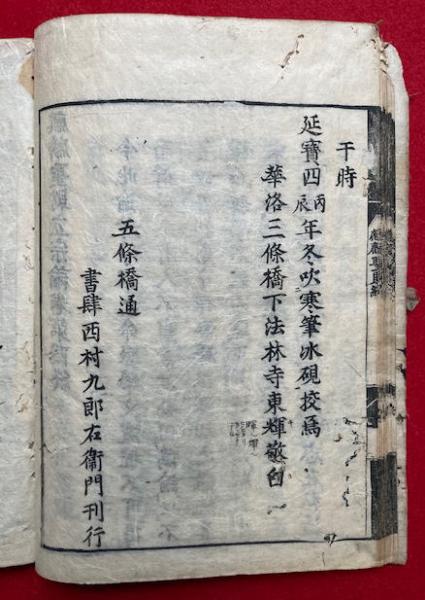 干時
延寶四丙辰年冬吹寒筆冰硯挍焉
華洛三條橋下法林寺東輝敬白
五條橋通
書肆西村九郎右衞門刊行